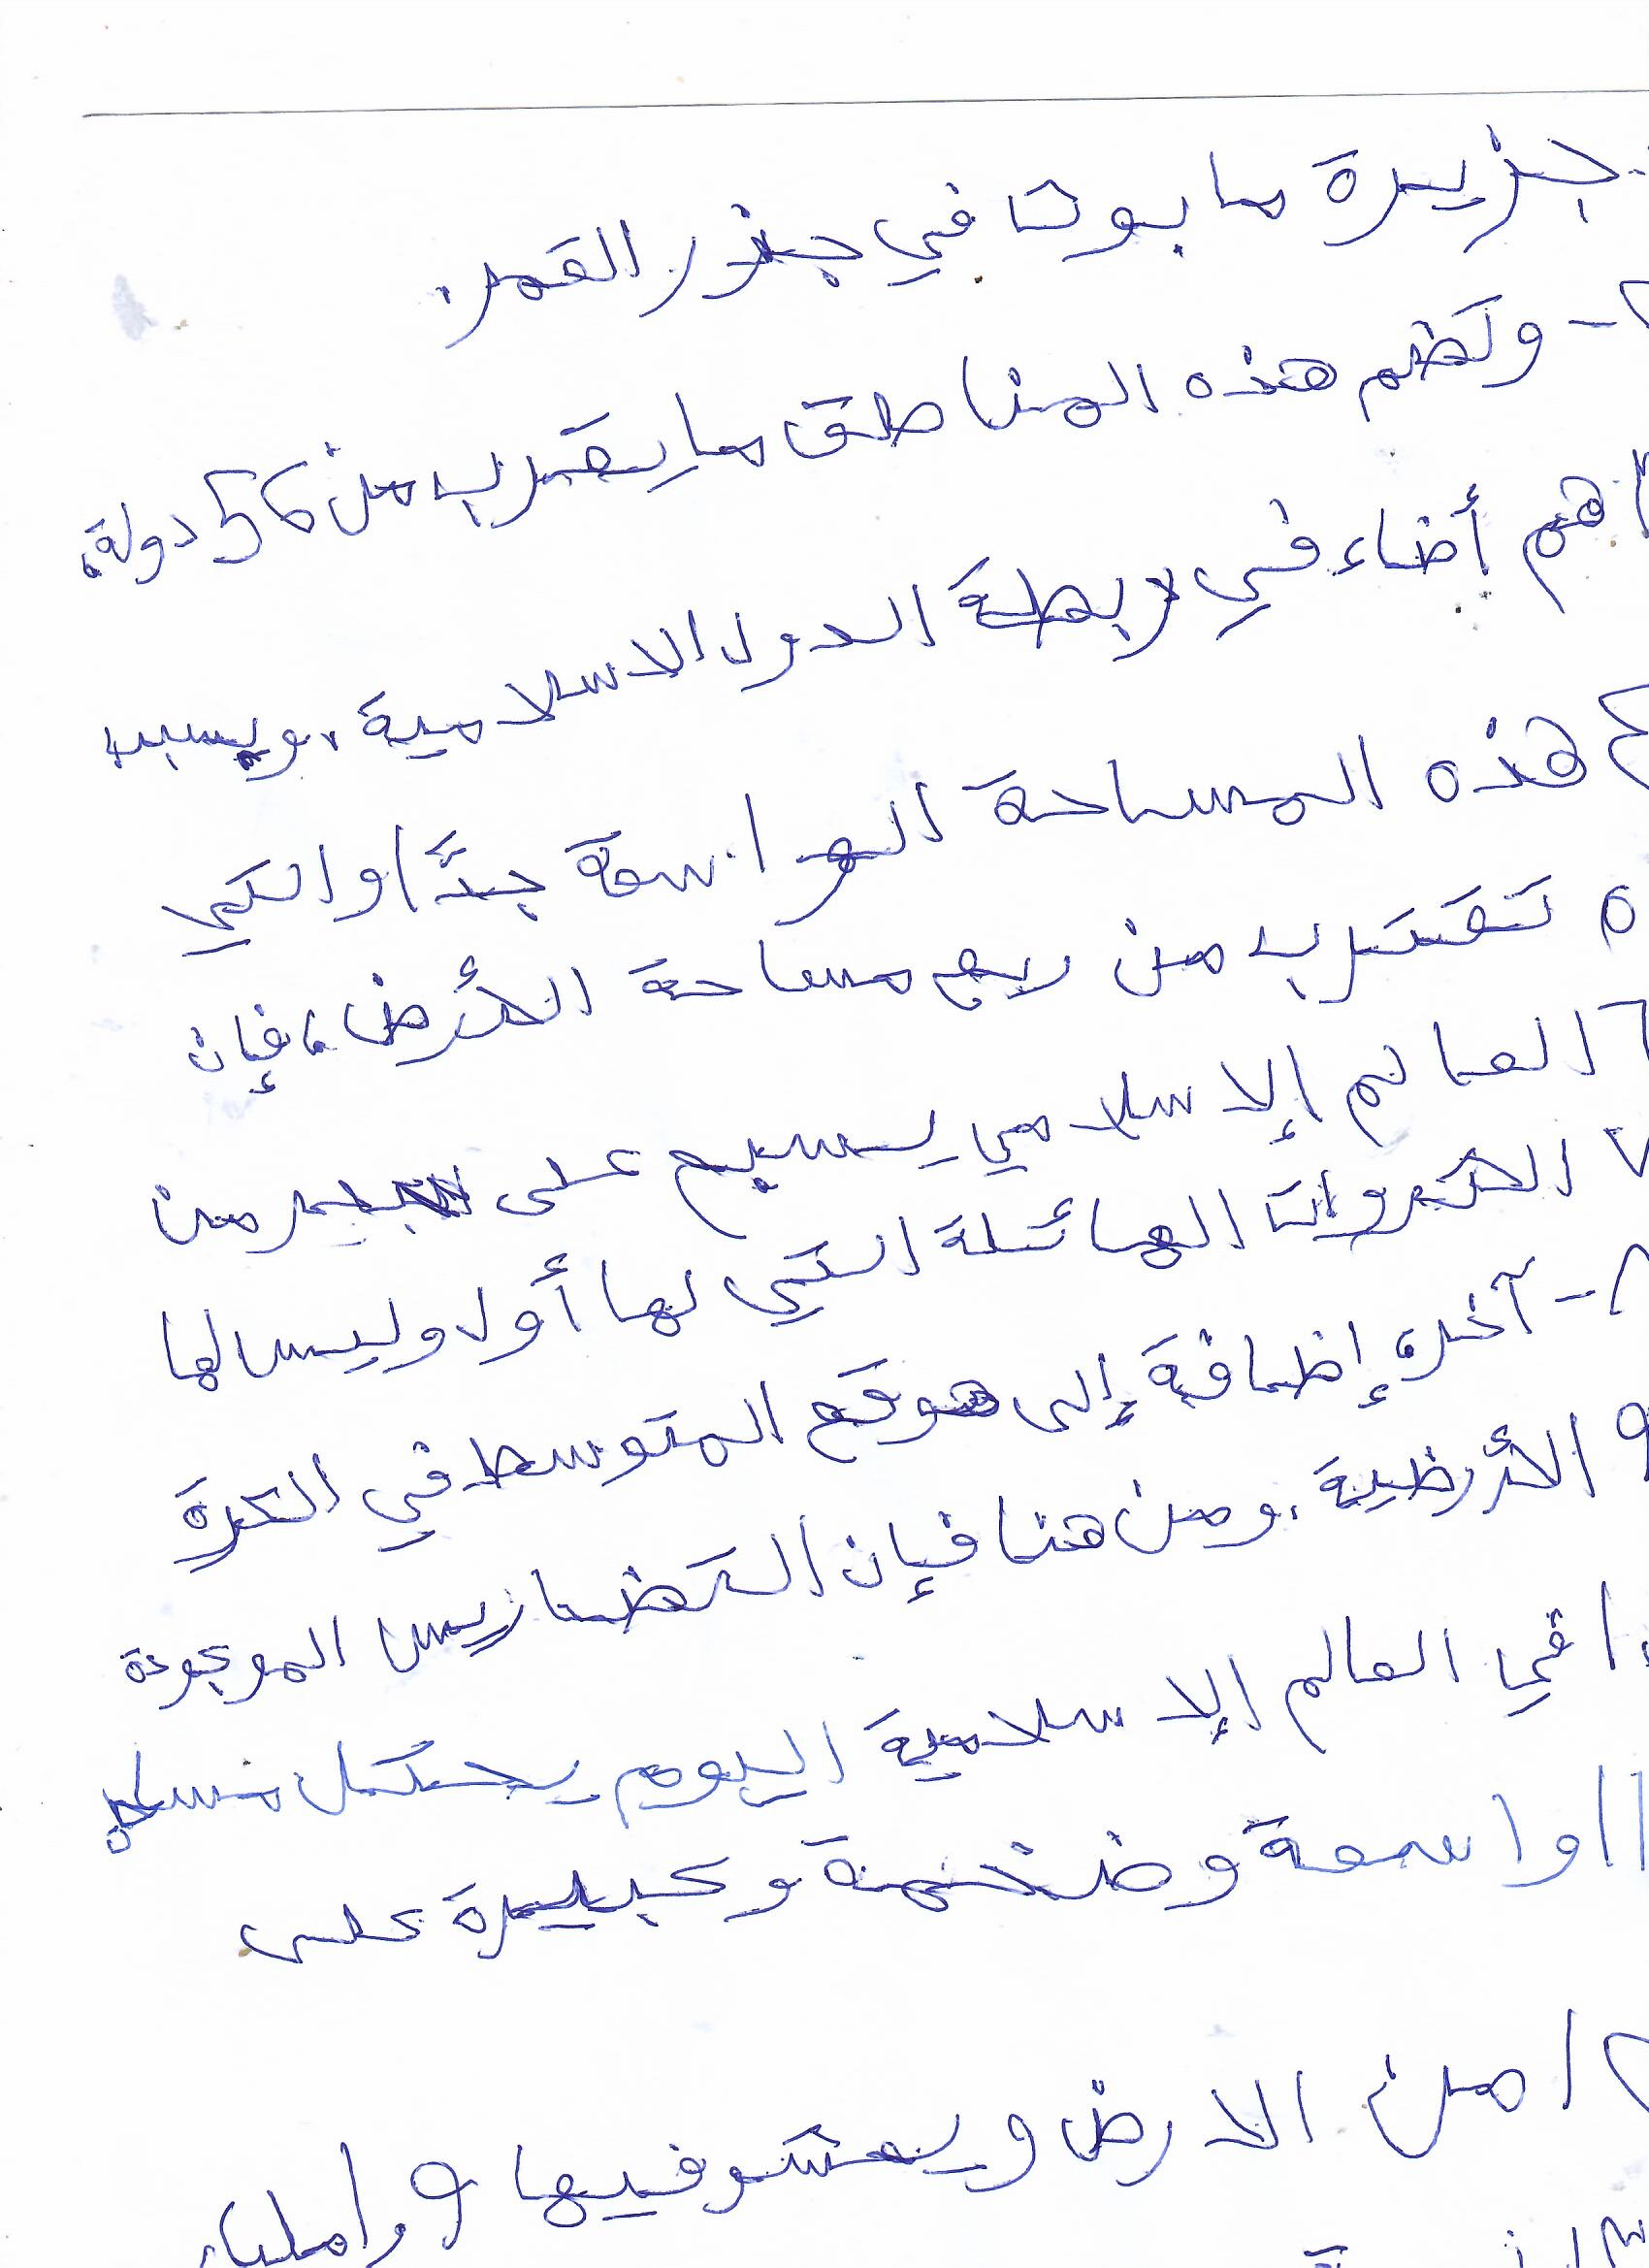 . جزيرة مابوتا في جذر القمر.
٢- وتضم هذه المناطق ما يقرب من 56 دولة،
٣ هم أضاء في ربطة الدول الاسلامية، وبسبب
٤ هذه المساحة الواسعة جدًّا والتي
٥ تقترب من ربع مساحة الأرض، فإن
٦ العالم إلاسلامي يسبح على من
٧ الثروات الهائلة التي لها أول وليس لها
٨- آخر، إضافة إلى موقع المتوسط في الكرة
٩ الأرضية. ومن هنا فإن التضاريس الموجودة
١٠ في العالم إلاسلامية اليوم يحتل
١١ واسعة وضخمة وكبيرة على
١٢ من الارض ويعشو فيها ١,٩ مليا